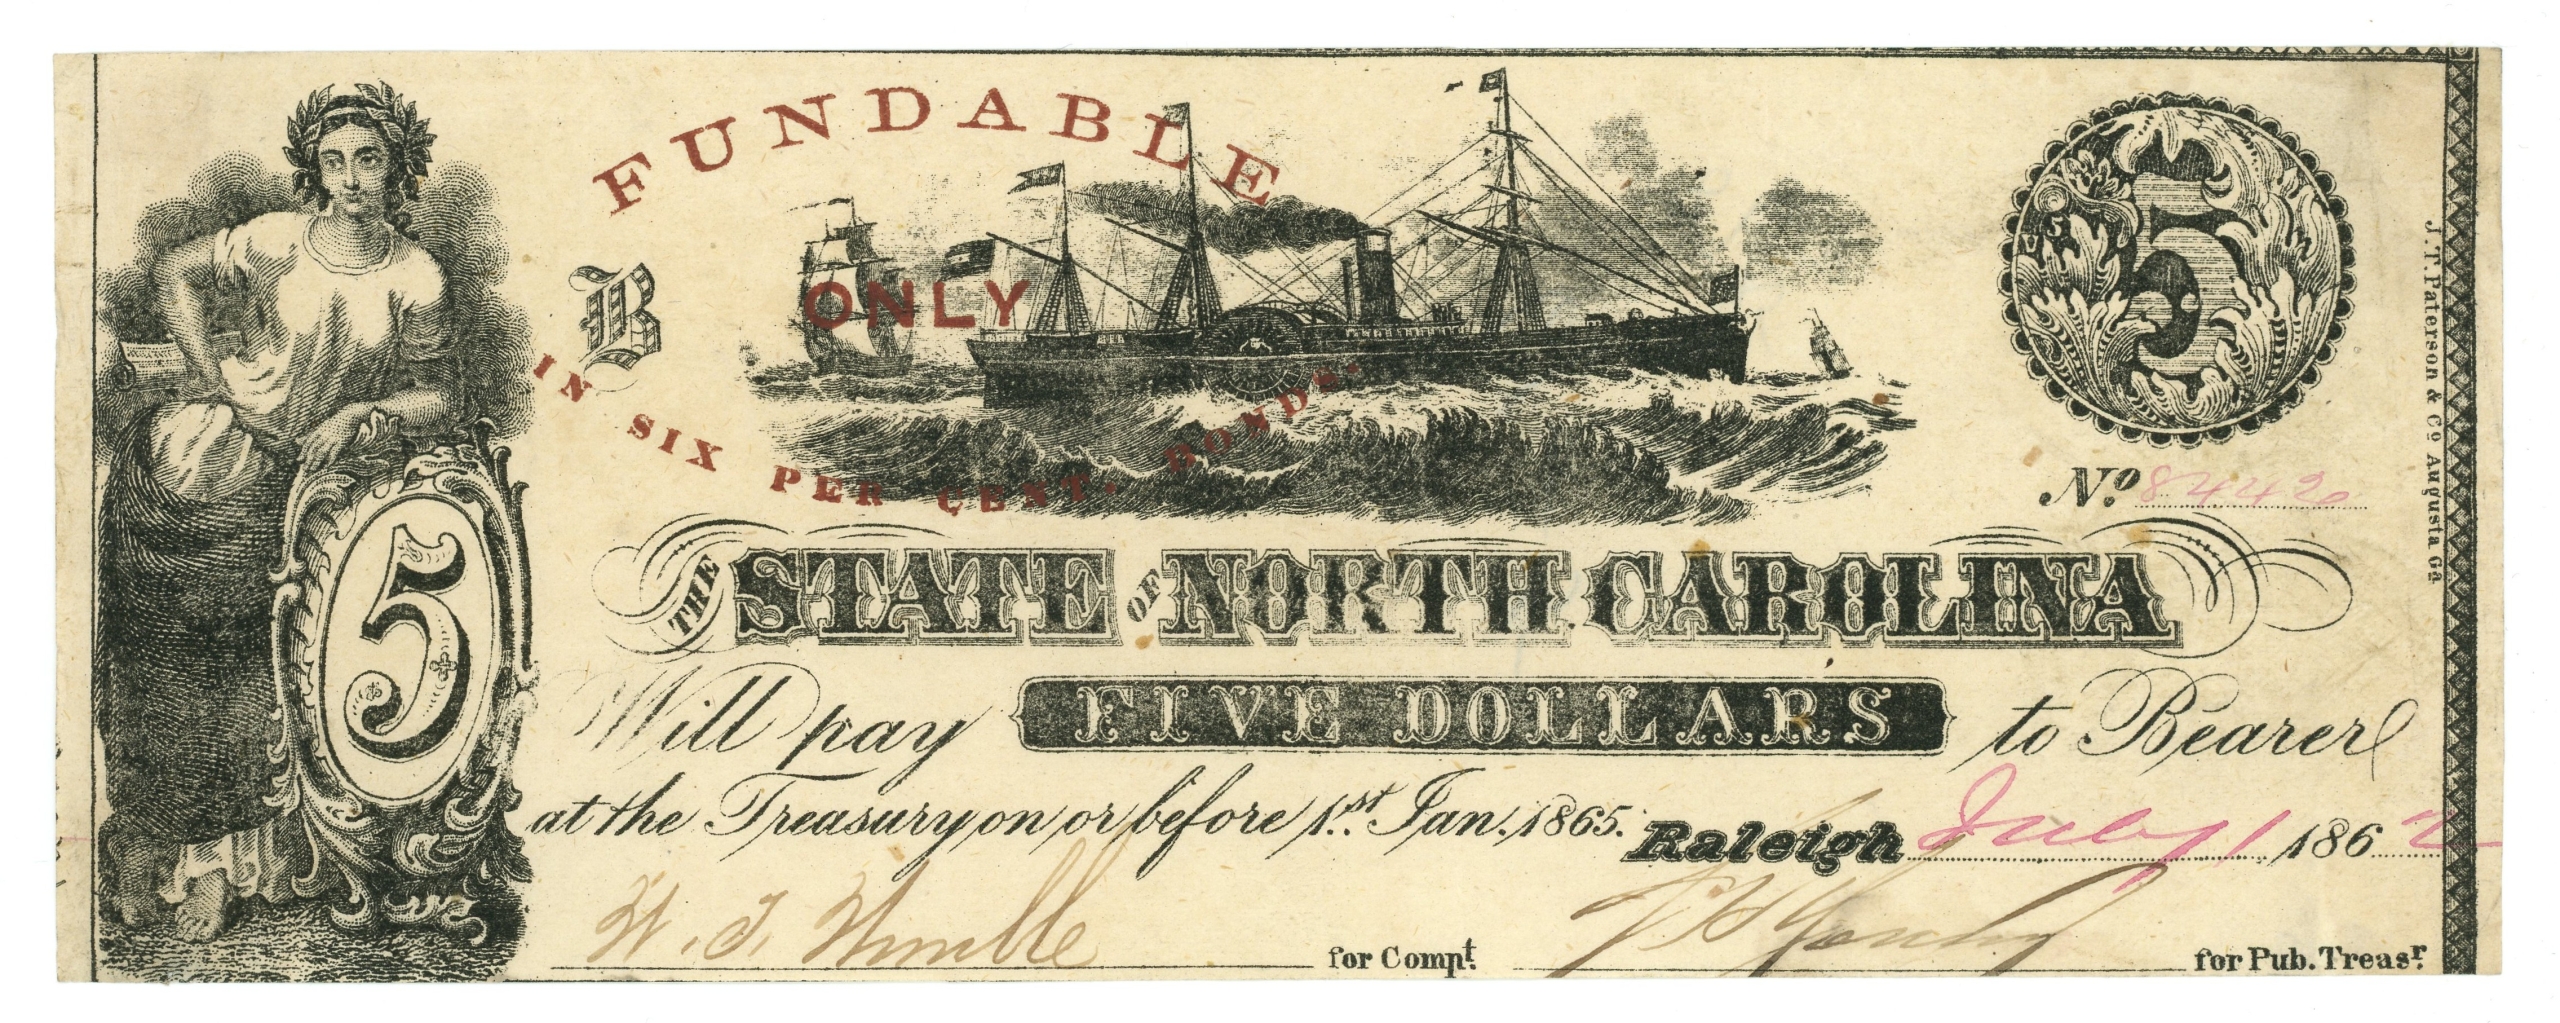 FUNDABLE
ONLY
IN SIX PER CENT. BONDS.
B
5
5
No. 84420
J. T. Paterson & Co. Augusta Ga.
THE STATE OF NORTH CAROLINA
Will pay FIVE DOLLARS to Bearer
at the Treasury on or before 1st. Jan. 1865. Raleigh July 1 1862
for Compt.
for Pub. Treasr.